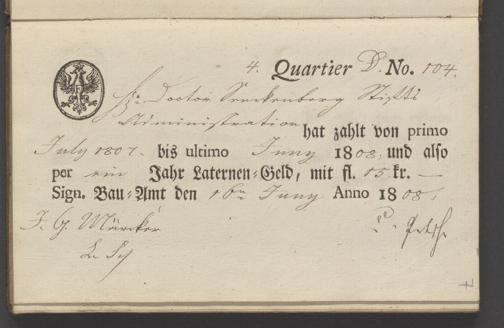 4. Quartier D. No. 104.
Hr. Doctor Senckenberg Stiffts
Administration hat zahlt von primo
July 1807. bis ultimo Juny 1808, und also
per ein Jahr Laternen=Geld, mit fl. 15 kr. —
Sign. Bau=Amt den 16n Juny Anno 1808.
J. G. Märcker